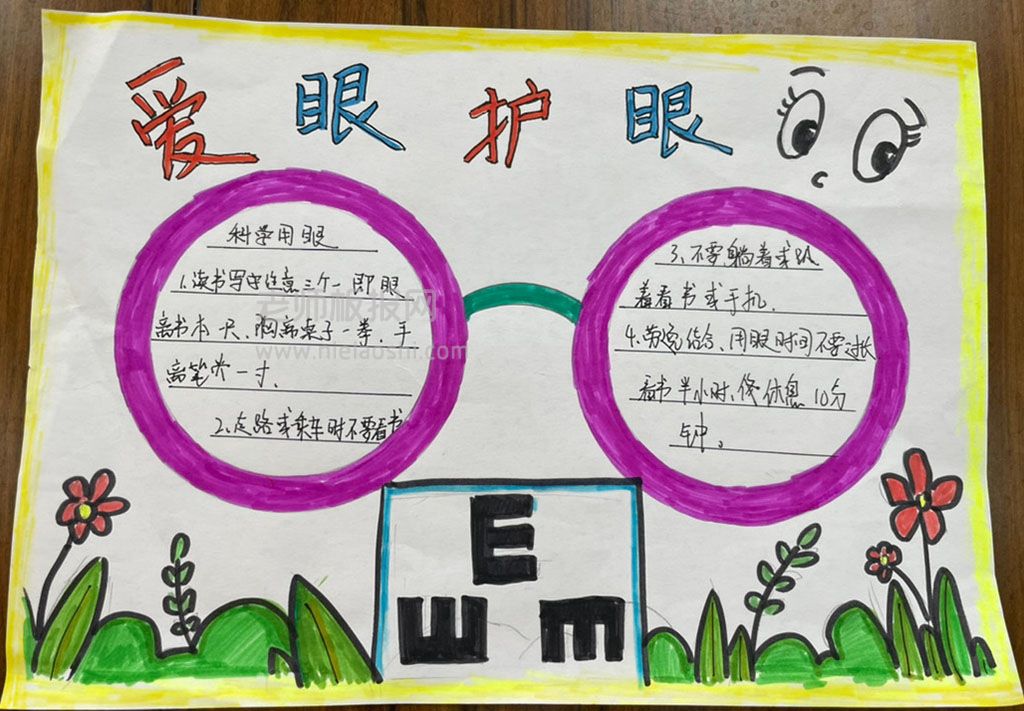 爱眼护眼
科学用眼
1.读书写字注意三个一即眼
离书本一尺、胸离桌子一拳、手
离笔尖一寸、
2、走路或乘车时不要看书
3、不要躺着或趴
着看书或手机.
4.劳逸结合、用眼时间不要过长
看书半小时、休息10分
钟。
E
E
E
老师板报网